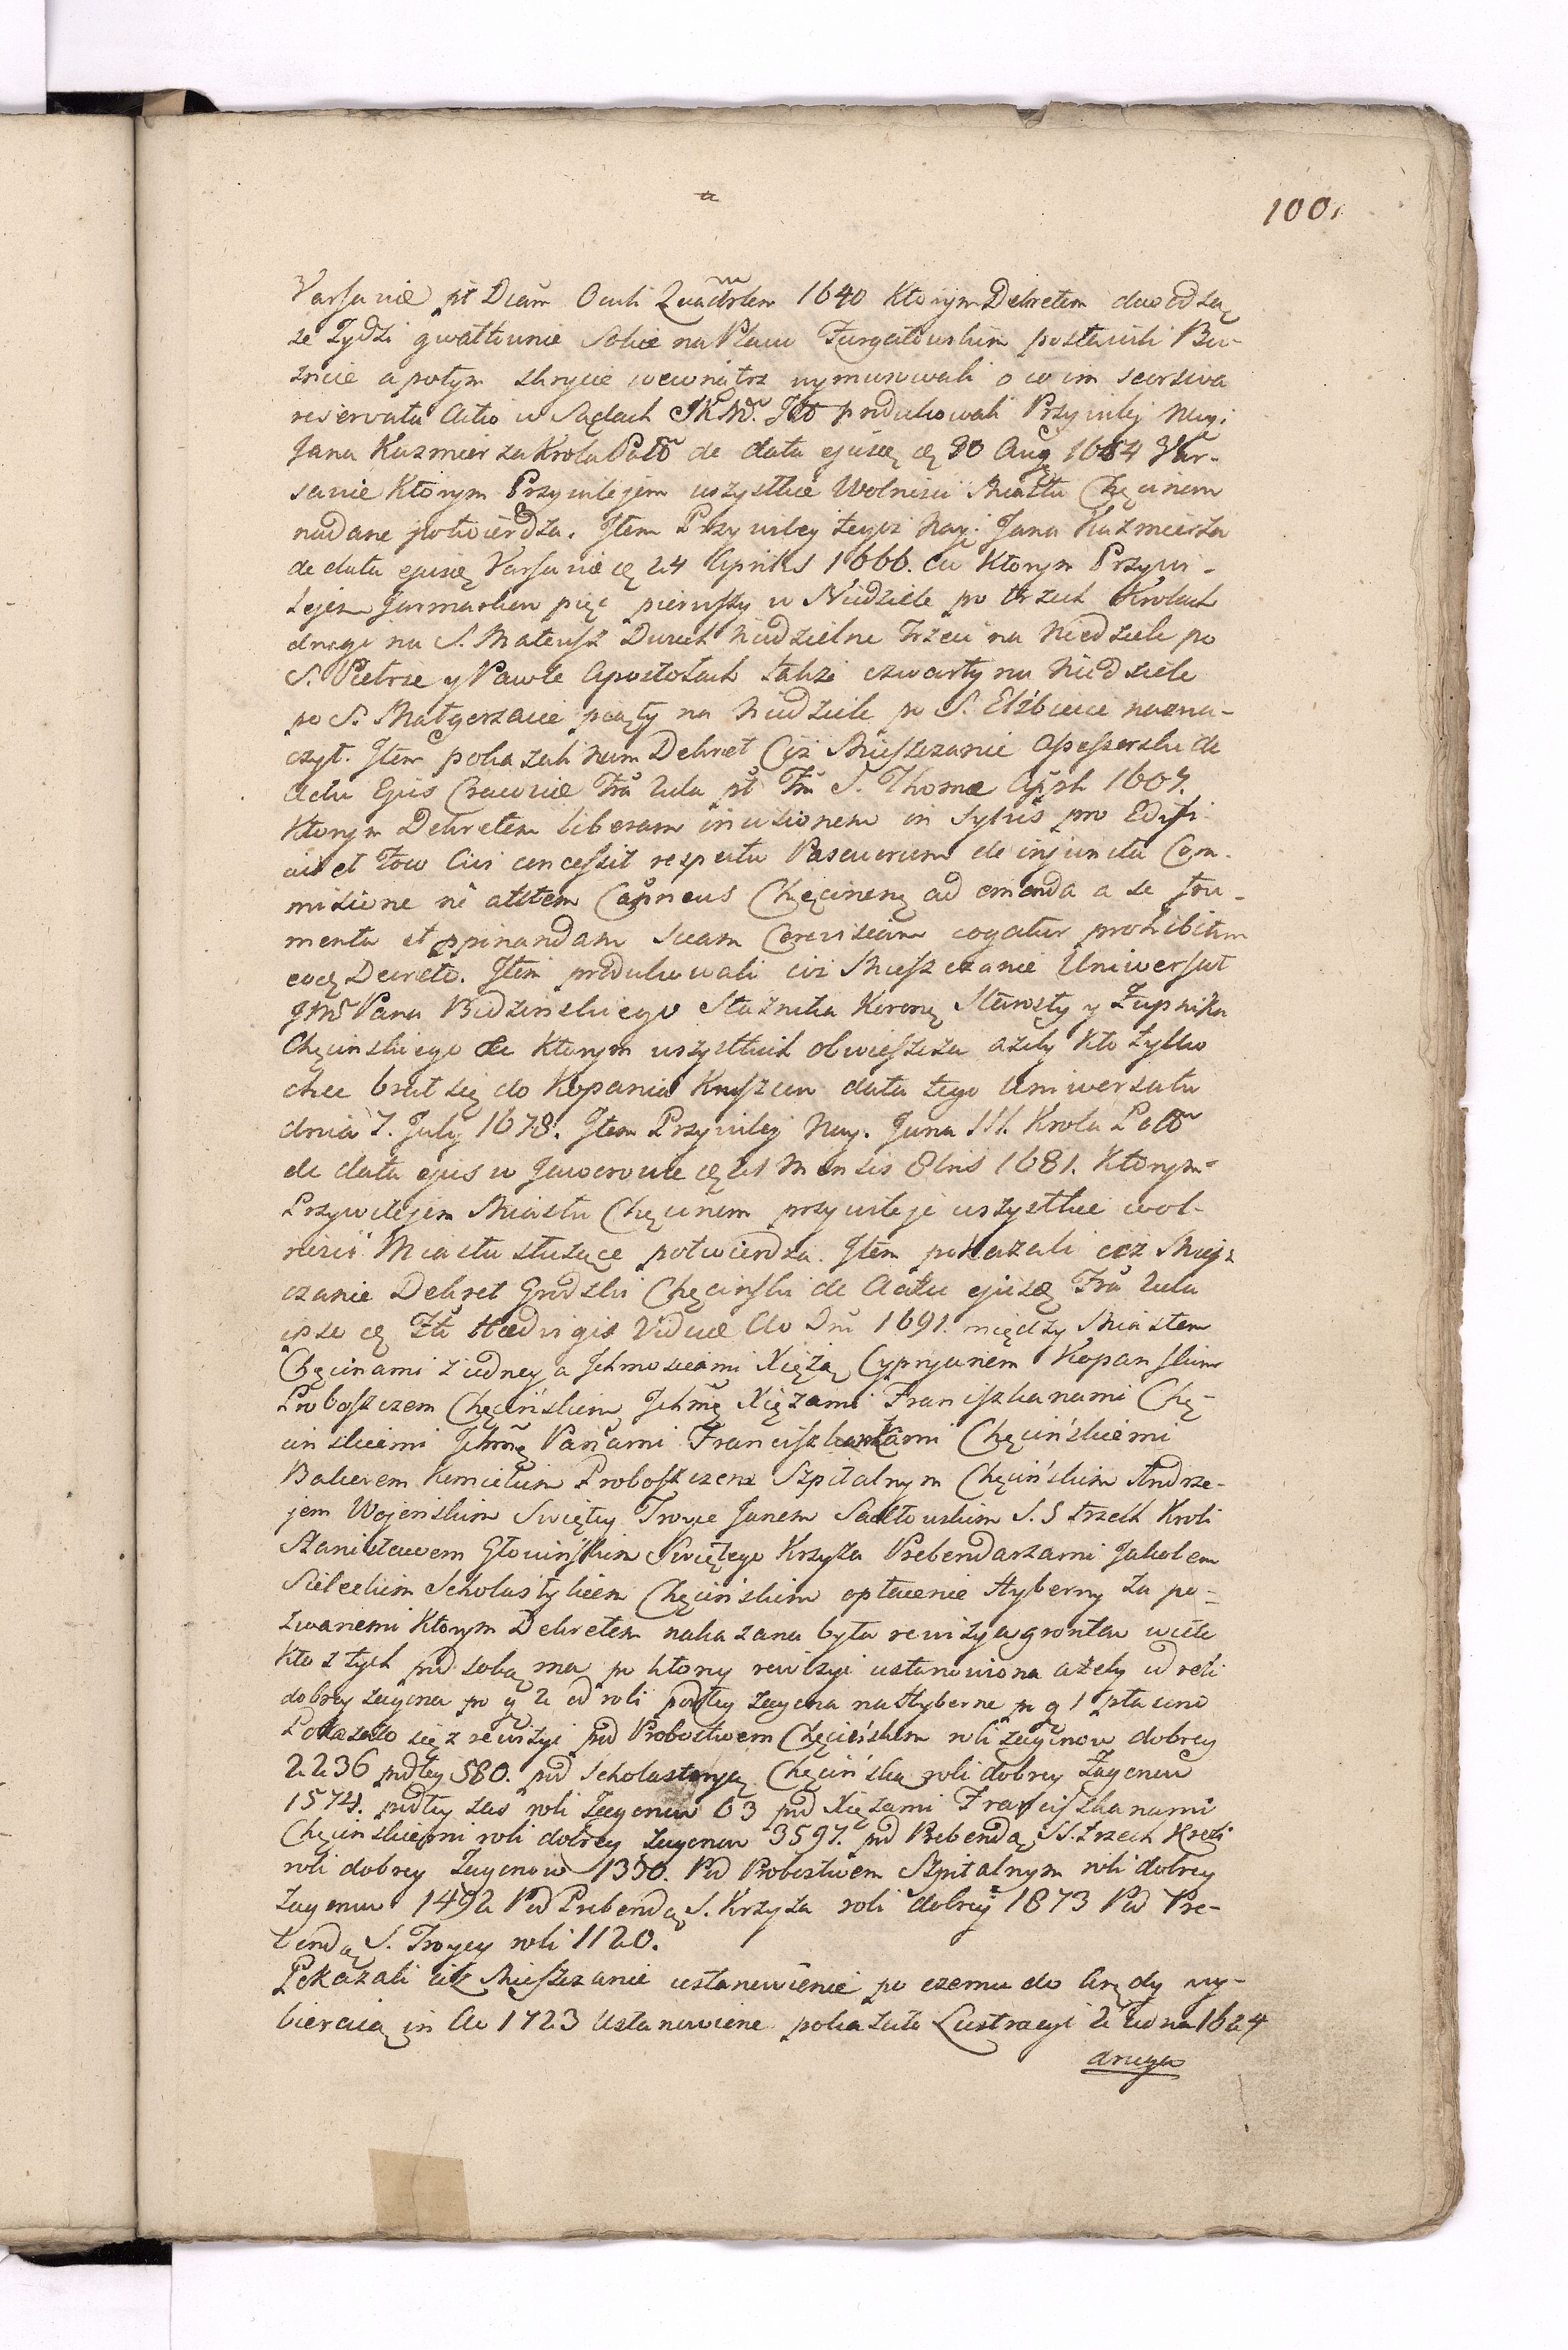 100.
Varsaviæ pt Dcam Oculi Quadrslem 1640 Ktorym Dekretem dowodzą
ze Zydzi gwałtownie sobie na Placu Furgałowskim postawili Bu-
znice a potym skrycie wewnątrz wymurowali o co im seorsiva
reservata Actio w Sądach JKM. Ito produkowali Przywiley Nay:
Jana Kazmierza Krola Polo de data ejusq q 30 Aug 1654 Var-
saviæ Ktorym Przywilejem wszystkie Wolnosci Miastu Chęcinom
nadane potwierdza. Jtem Przywiley tegoż Nay: Jana Kazmierza
de data ejusq Varsaviæ q 24 Aprilis 1666. w Ktorym Przywi-
lejem Jarmarkow pięć pierwszy w Niedziele po trzech Krolach
drugi na S. Mateusz Dwuch Niedzielne trzeci na Niedziele po
S. Pietrze y Pawle Apostołach także czwarty na Niedziele
po S. Małgorzacie piąty na Niedziele po S. Elżbiecie nazna-
czył. Jtem pokazali nam Dekret Ciż Mieszczanie Assesserski de
Actu Ejus Cracoviæ Fra 2da pt Fm S. Thomæ Apsli 1607.
Ktorym Dekretem liberam incisionem in Sylvis pro Edifi-
ciis et Foco Civi concessit respectu Pascuorum de injuncta Com-
misione ni attem Capneus Chęcinens ad emenda a se fru-
menta et ppinandam suam Cerevisiam cogatur prohibitum
eodq Decreto. Jtem produkowali ciż Mieszczanie Uniwersał
JMP Pana Bidzinskiego Strażnika Koronq Starosty y Zupnika
Chęcinskiego w Ktorym wszystkich obwieszcza ażeby Kto tylko
chce brał się do Kopania Kruszcow data tego Uniwersału
dnia 7. July 1678. Jtem Przywiley Nay. Jana III. Krola Polo
de data ejus w Jaworowie q 21 Mensis 8bris 1681. Ktorym
Przywilejem Miastu Chęcinom przywileje wszystkie wol-
nosci Miastu służące potwierdza. Jtem pokazali ciż Miesz
czanie Dekret Grodzki Chęcinski de Actu ejusq Fra 2da
ipso q Fto Hedvigis Viduæ Ao Dni 1691. między Miastem
Chęcinami z iedney a Jchmosciami Xiężą Cypryanem Kopanskim
Proboszczem Chęcińskim, Jchmq Xiężami Franciszkanami Chę-
cinskiemi Jchmq Pannami Franciszkankami Chęcińskiemi
Balcerem Kmicikim Proboszczem Szpitalnym Chęcińskim Andrze-
jem Wojenskim Swiętey Troyce Janem Sadłowskim S. S trzech Kroli
Stanisławem Głowińskim Swiętego Krzyża Prebendarzami Jakobem
Sieleckim Scholastykiem Chęcinskim opłacenie Hyberny za po-
zwanemi Ktorym Dekretem nakazana była rewizya gruntow wiele
Kto z tych pod sobą ma po ktory rewizyi ustanowiono ażeby od roli
dobrey zagona po g 2 od roli podłey zagona na Hyberne po g 1 płacono
Pokazało się z rewizyi pod Probostwem Chęcińskim roli zagonow dobrey
2236 podłey 580. pod Scholasteryą Chęcińską roli dobrey Zagonow
1574. podłey zas roli Zagonow 63 pod Xiężami Franciszkanami
Chęcinskiemi roli dobrey zagonow 3597. pod Prebendą SS. trzech Kroli
roli dobrey Zagonow 1330. Pod Probostwem Szpitalnym roli dobrey
Zagonow 1492 Pod Prebendą S. Krzyża roli dobrey 1873 Pod Pre-
bendą S. Troycy roli 1120.
Pokazali ciż Mieszczanie ustanowienie po czemu do Arędy wy-
bieraią in Ao 1723 Ustanowione pokazało Lustracyi 2 iedna 1624
druga